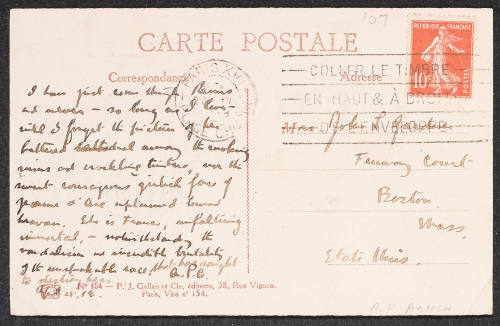 107
CARTE POSTALE
Correspondance
Adresse
RÉPUBLIQUE FRANÇAISE
10
POSTES
PARIS XV
COLLER LE TIMBRE
EN HAUT & À DROITE
DE L'ENVELOPPE
I have just come through Reims
as never – so long as I live
will I forget the picture of her
battered cathedral among the smoking
ruins and crackling timbers, nor the
sweet courageous girlish face of
Jeanne d'Arc upturned toward
heaven. She is France, unfaltering
immortal, – notwithstanding the
vandalism and incredible brutality
of the unspeakable race that has sought
to destroy her.
A.P.A.
Mrs John L. Gardner
Fenway Court
Boston
Mass.
Etats Unis.
N° 184 - P. J. Gallais et Cie, éditeurs, 38, Rue Vignon.
Paris, Visé n° 154.
A. P. Andrew